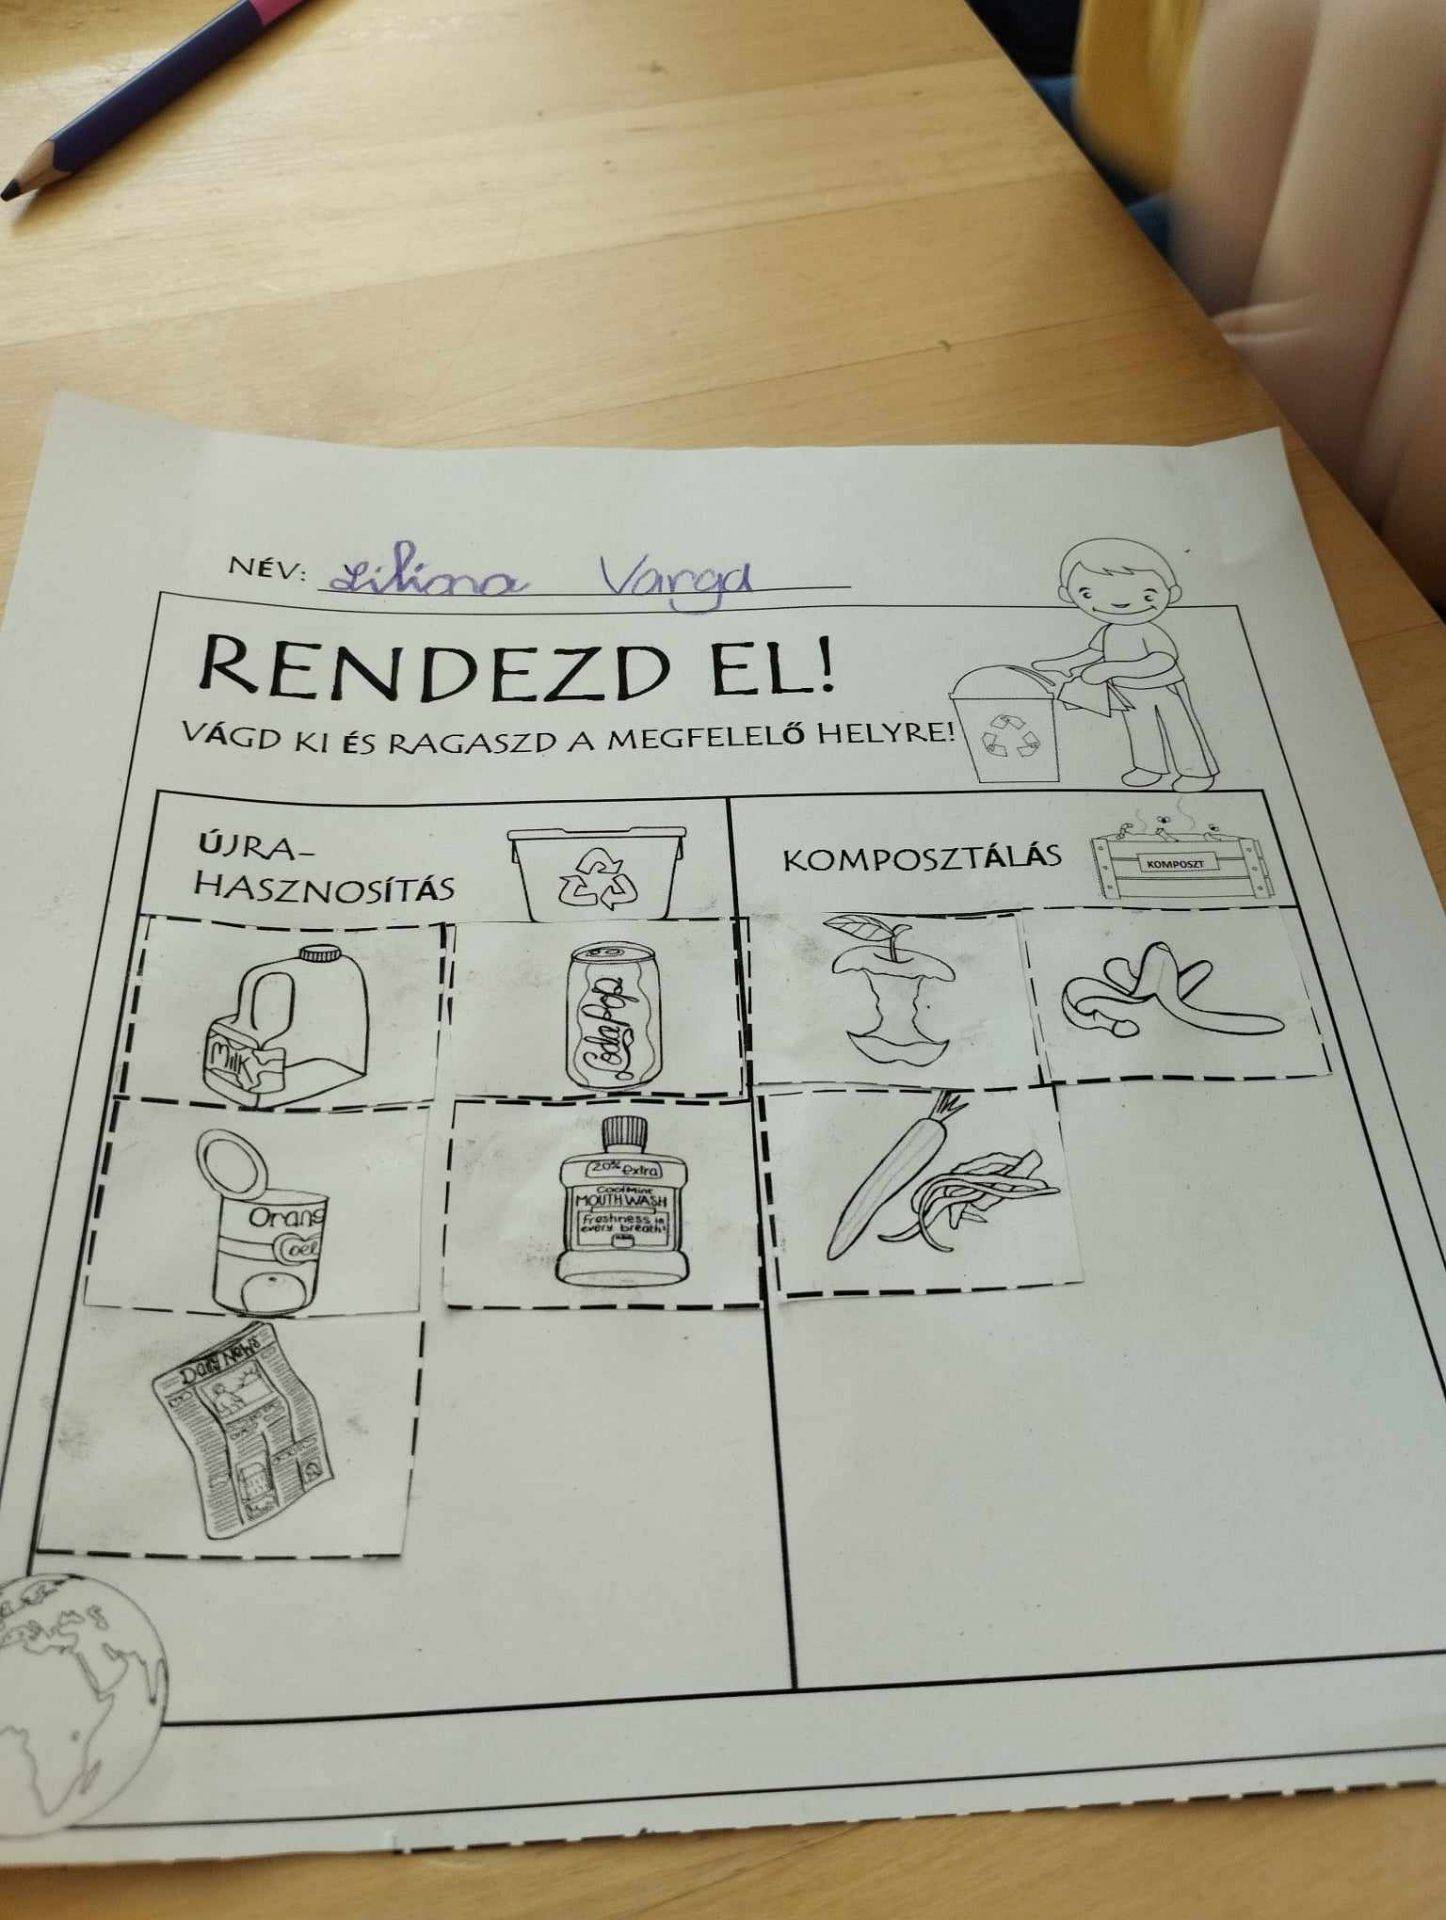 NÉV: Liliana Varga
RENDEZD EL!
VÁGD KI ÉS RAGASZD A MEGFELELŐ HELYRE!
ÚJRA-
HASZNOSÍTÁS
KOMPOSZTÁLÁS
KOMPOSZT
Milk
20% extra
CoolMint
MOUTHWASH
Freshness in
every breath!
Orang